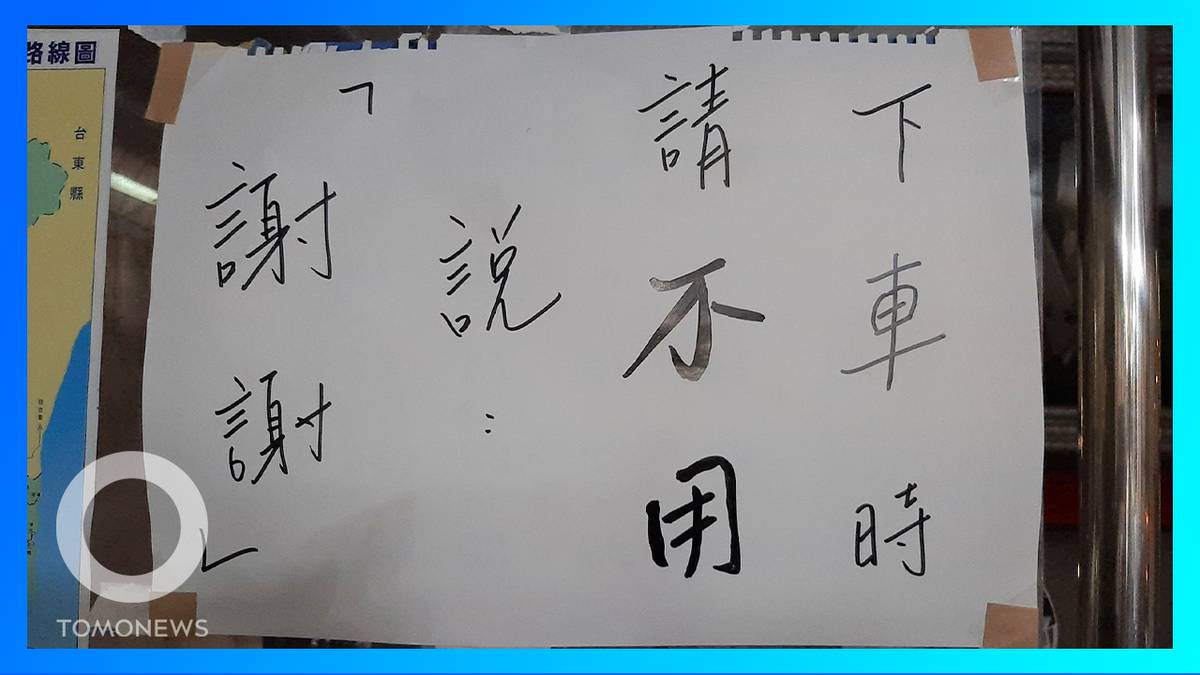 下車時
請不用
說：
「謝謝」
路線圖
台東縣
TOMONEWS